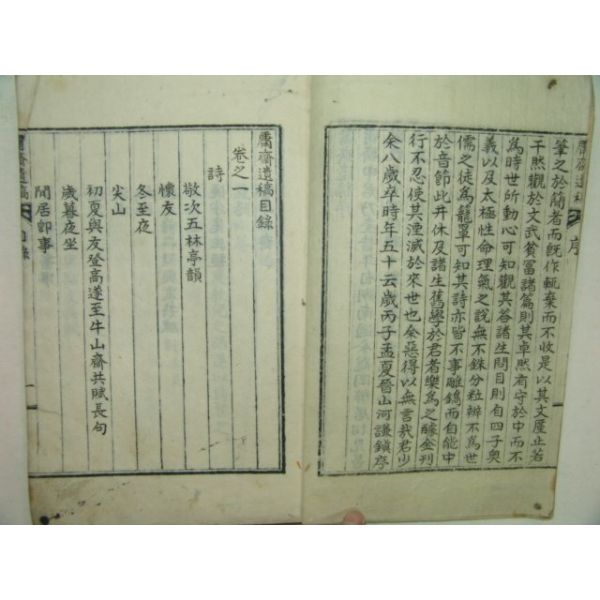 序
筆之於簡者而旣作輒棄而不收是以其文厪止若
干然觀於文武貧冨諸篇則其卓然有守於中而不
爲時世所動心可知觀其答諸生問目則自四子奧
義以及太極性命理氣之說無不銖分粒辨不爲世
儒之徒爲籠罩可知其詩亦皆不事雕鎸而自能中
於音節此升休及諸生舊學於君者樂爲之醵金刊
行不忍使其湮滅於來世也余惡得以無言哉君少
余八歲卒時年五十云歲丙子孟夏晉山河謙鎭序
齋遺稿目錄
卷之一
詩
敬次五林亭韻
懷友
冬至夜
尖山
初夏與友登高遂至牛山齋共賦長句
歲暮夜坐
閒居卽事
齋遺稿 目錄